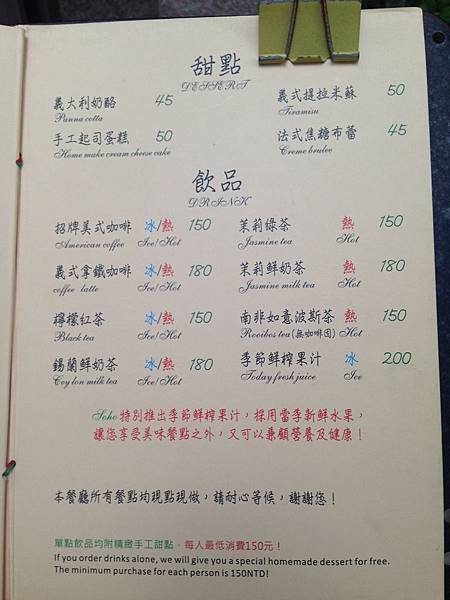 甜點
DESSERT
義大利奶酪 45 義式提拉米蘇 50
Panna cotta Tiramisu
手工起司蛋糕 50 法式焦糖布蕾 45
Home make cream cheese cake Creme brulee
飲品
DRINK
招牌美式咖啡 冰/熱 150 茉莉綠茶 熱 150
American coffee Ice/Hot Jasmine tea Hot
義式拿鐵咖啡 冰/熱 180 茉莉鮮奶茶 熱 180
coffee latte Ice/Hot Jasmine milk tea Hot
檸檬紅茶 冰/熱 150 南非如意波斯茶 熱 150
Black tea Ice/Hot Rooibos tea(無咖啡因) Hot
錫蘭鮮奶茶 冰/熱 180 季節鮮榨果汁 冰 200
Ceylon milk tea Ice/Hot Today fresh juice Ice
Soho特別推出季節鮮榨果汁，採用當季新鮮水果，
讓您享受美味餐點之外，又可以兼顧營養及健康！
本餐廳所有餐點均現點現做，請耐心等候，謝謝您！
單點飲品均附精緻手工甜點，每人最低消費150元！
If you order drinks alone, we will give you a special homemade dessert for free.
The minimum purchase for each person is 150NTD!